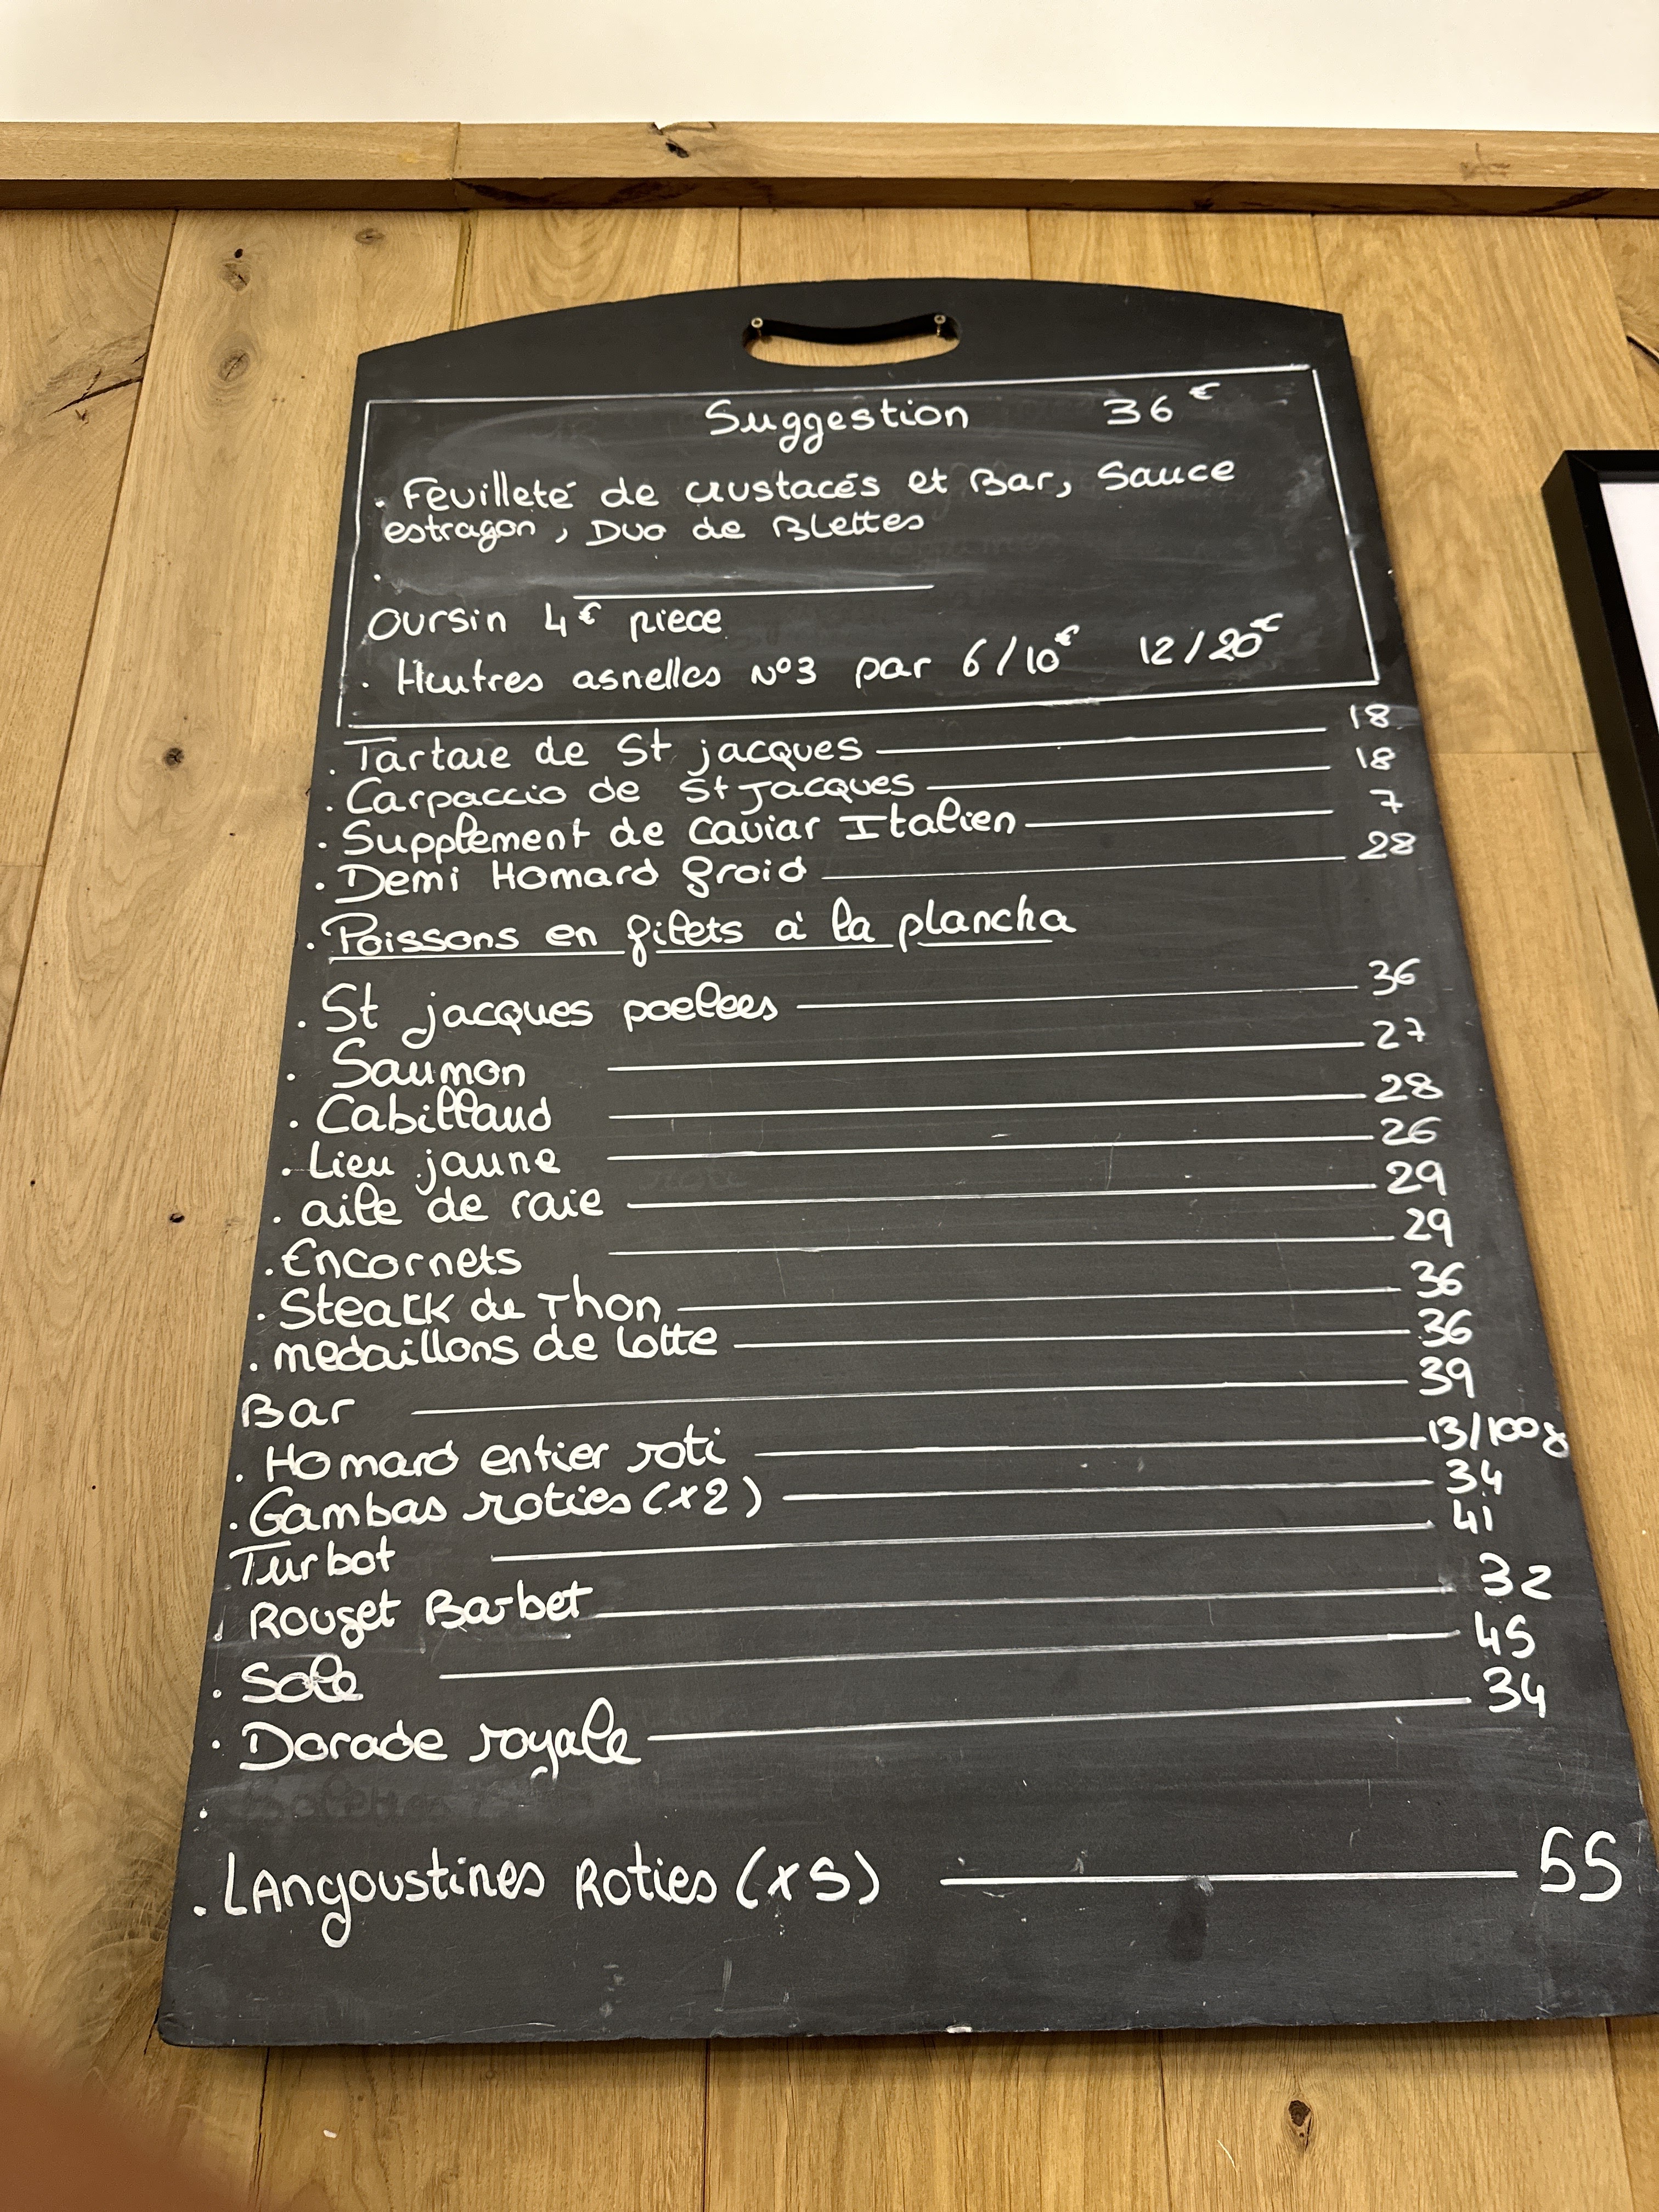 Suggestion 36€
. Feuilleté de crustacés et Bar, Sauce
estragon, Duo de Blettes
.
Oursin 4€ piece
. Huitres asnelles N°3 par 6/10€ 12/20€
. Tartare de St jacques 18
. Carpaccio de St Jacques 18
. Supplement de caviar Italien 7
. Demi Homard froid 28
. Poissons en filets à la plancha
. St jacques poelees 36
. Saumon 27
. Cabillaud 28
. Lieu jaune 26
. aile de raie 29
. Encornets 29
. Steack de Thon 36
. medaillons de lotte 36
Bar 39
. Homard entier roti 13/100g
. Gambas roties (x2) 34
Turbot 41
. Rouget Barbet 32
. Sole 45
. Dorade royale 34
.
. LAngoustines Roties (x5) 55